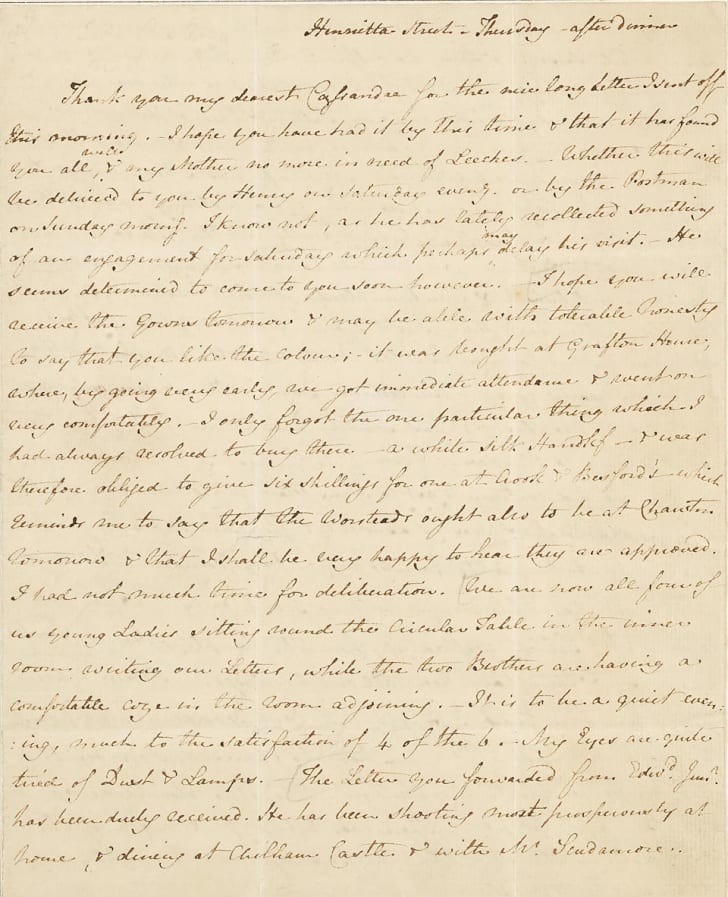 Henrietta Street - Thursday - after dinner
Thank you my dearest Cassandra for the nice long Letter I sent off
this morning. - I hope you have had it by this time & that it has found
you all well, & my Mother no more in need of Leeches. - Whether this will
be delivered to you by Henry on Saturday eveng. or by the Postman
on Sunday morng. I know not, as he has lately recollected something
of an engagement for Saturday which perhaps may delay his visit. - He
seems determined to come to you soon however. - I hope you will
receive the Gown tomorrow & may be able with tolerable honesty
to say that you like the Colour; - it was bought at Grafton House,
where, by going very early, we got immediate attendance & went on
very comfortably. - I only forgot the one particular thing which I
had always resolved to buy there - a white silk Handkf - & was
therefore obliged to give six shillings for one at Crook & Besford's - which
reminds me to say that the Worsteads ought also to be at Chawton
tomorrow & that I shall be very happy to hear they are approved.
I had not much time for deliberation. We are now all four of
us young Ladies sitting round the Circular Table in the inner
room writing our Letters, while the two Brothers are having a
comfortable coze in the room adjoining. - It is to be a quiet even:
:ing, much to the satisfaction of 4 of the 6. - My Eyes are quite
tired of Dust & Lamps. - The Letter you forwarded from Edwd. Junr.
has been duly received. He has been shooting most prosperously at
home, & dining at Chilham Castle & with Mr. Scudamore..